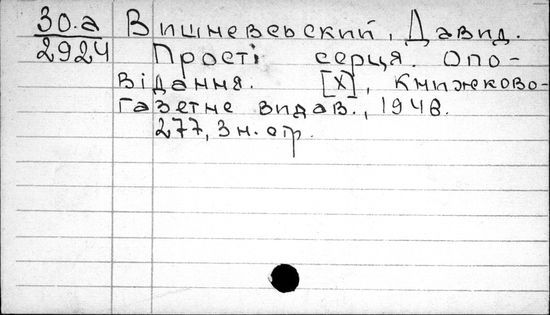 30.а Вишневеьский, Давид.
2924 Прості серця. Опо-
відання. [Х], Книжково-
газетне видав., 1948.
277, 3 н. стр.